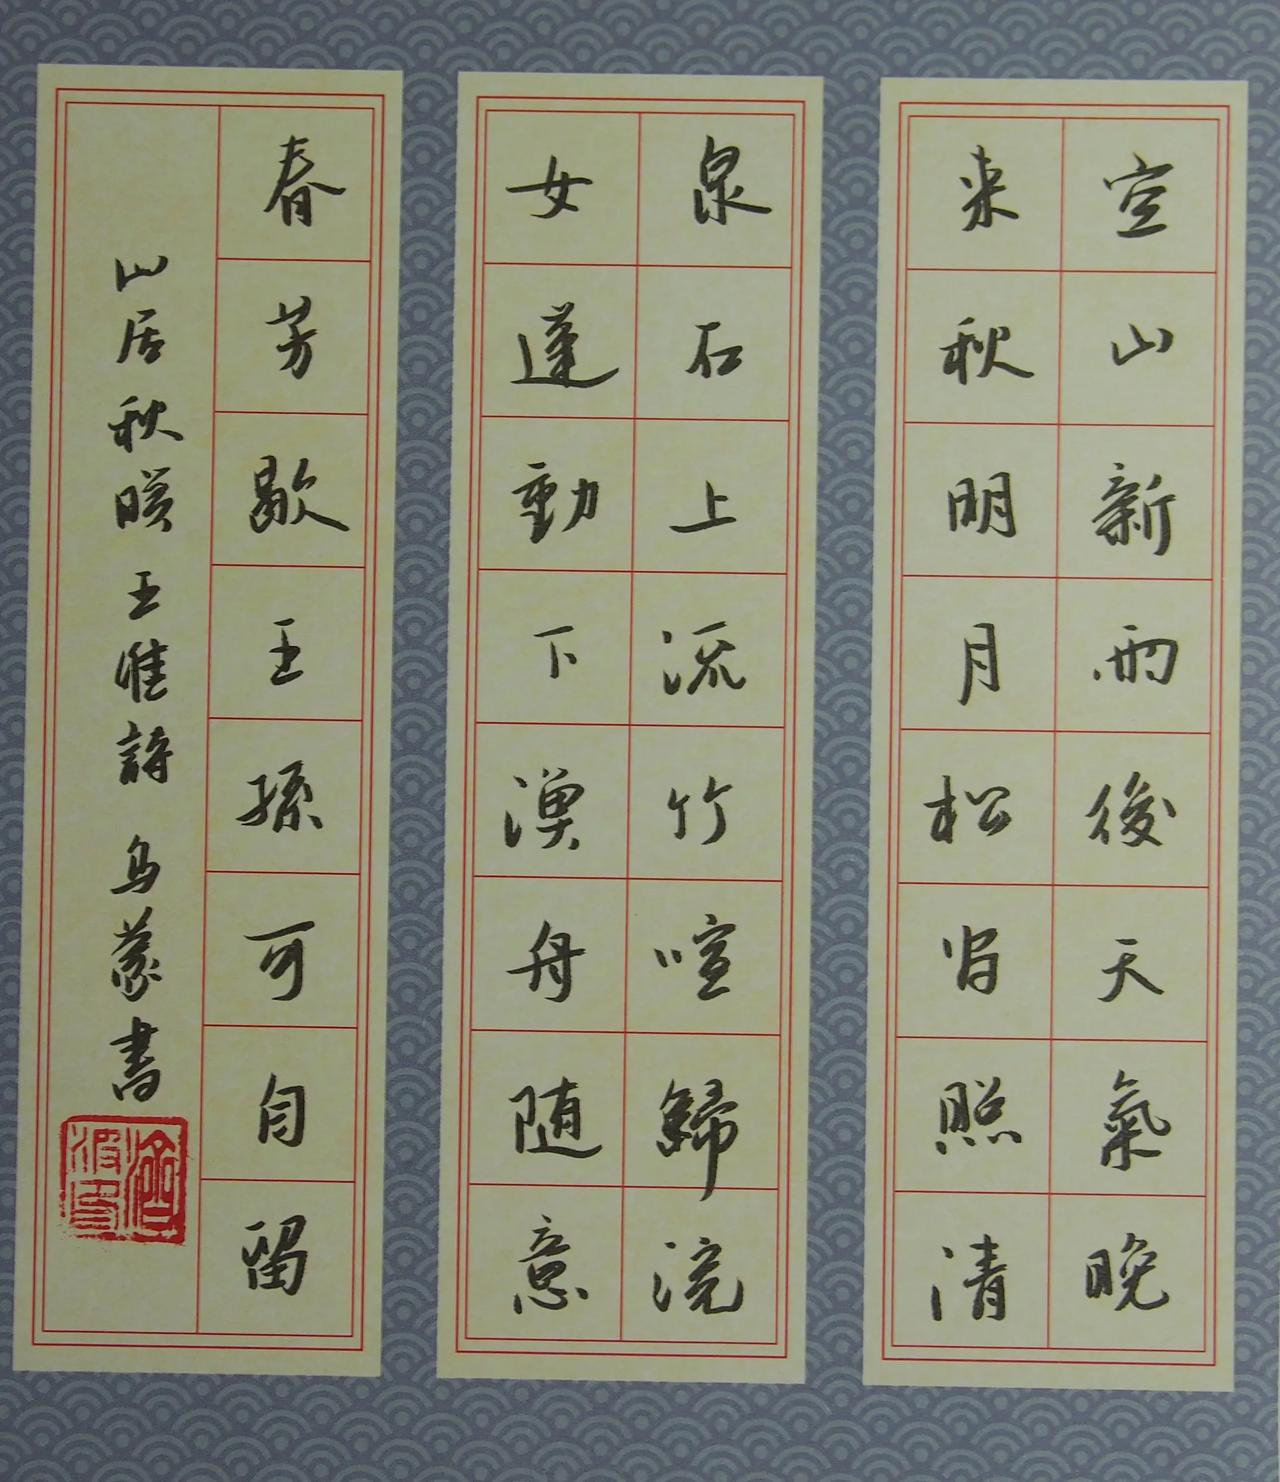 空山新雨後天氣晚
来秋明月松间照清
泉石上流竹喧歸浣
女蓮動下漁舟随意
春芳歇王孫可自留
山居秋暝王維詩 乌蒙書